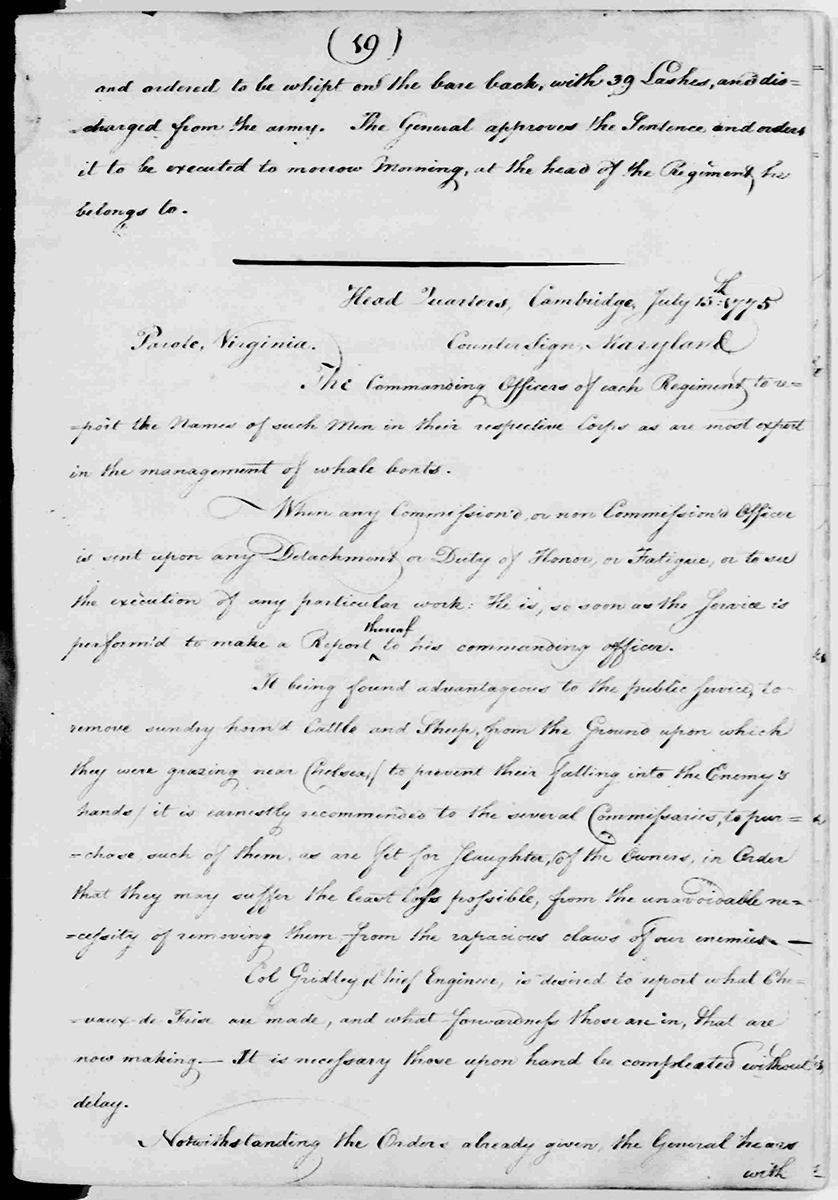 (59)
and ordered to be whipt on the bare back, with 39 Lashes, and dis=
=charged from the army. The General approves the Sentence and orders
it to be executed to morrow Morning, at the head of the Regiment he
belongs to.
Head Quarters, Cambridge, July 15th: 1775
Parole, Virginia. Counter Sign, Maryland
The Commanding Officers of each Regiment to re=
=port the Names of such Men in their respective Corps as are most expert
in the management of whale boats.
When any Commission'd, or non Commission'd Officer
is sent upon any Detachment, or Duty of Honor, or Fatigue, or to see
the execution of any particular work: He is, so soon as the Service is
thereof
perform'd to make a Report ^ to his commanding officer.
It being found advantageous to the public service, to
remove sundry horn'd Cattle and Sheep, from the Ground upon which
they were grazing near Chelsea, / to prevent their falling into the Enemy's
hands / it is earnestly recommended to the several Commissaries, to pur=
=chase such of them, as are fit for Slaughter, of the Owners, in Order
that they may suffer the least loss possible, from the unavoidable ne=
=cessity of removing them from the rapacious claws of our enemies. —
Col Gridley, chief Engineer, is desired to report what Che=
=vaux-de-Frise are made, and what forwardness those are in, that are
now making. — It is necessary those upon hand be compleated without
delay.
Notwithstanding the Orders already given, the General hears
with